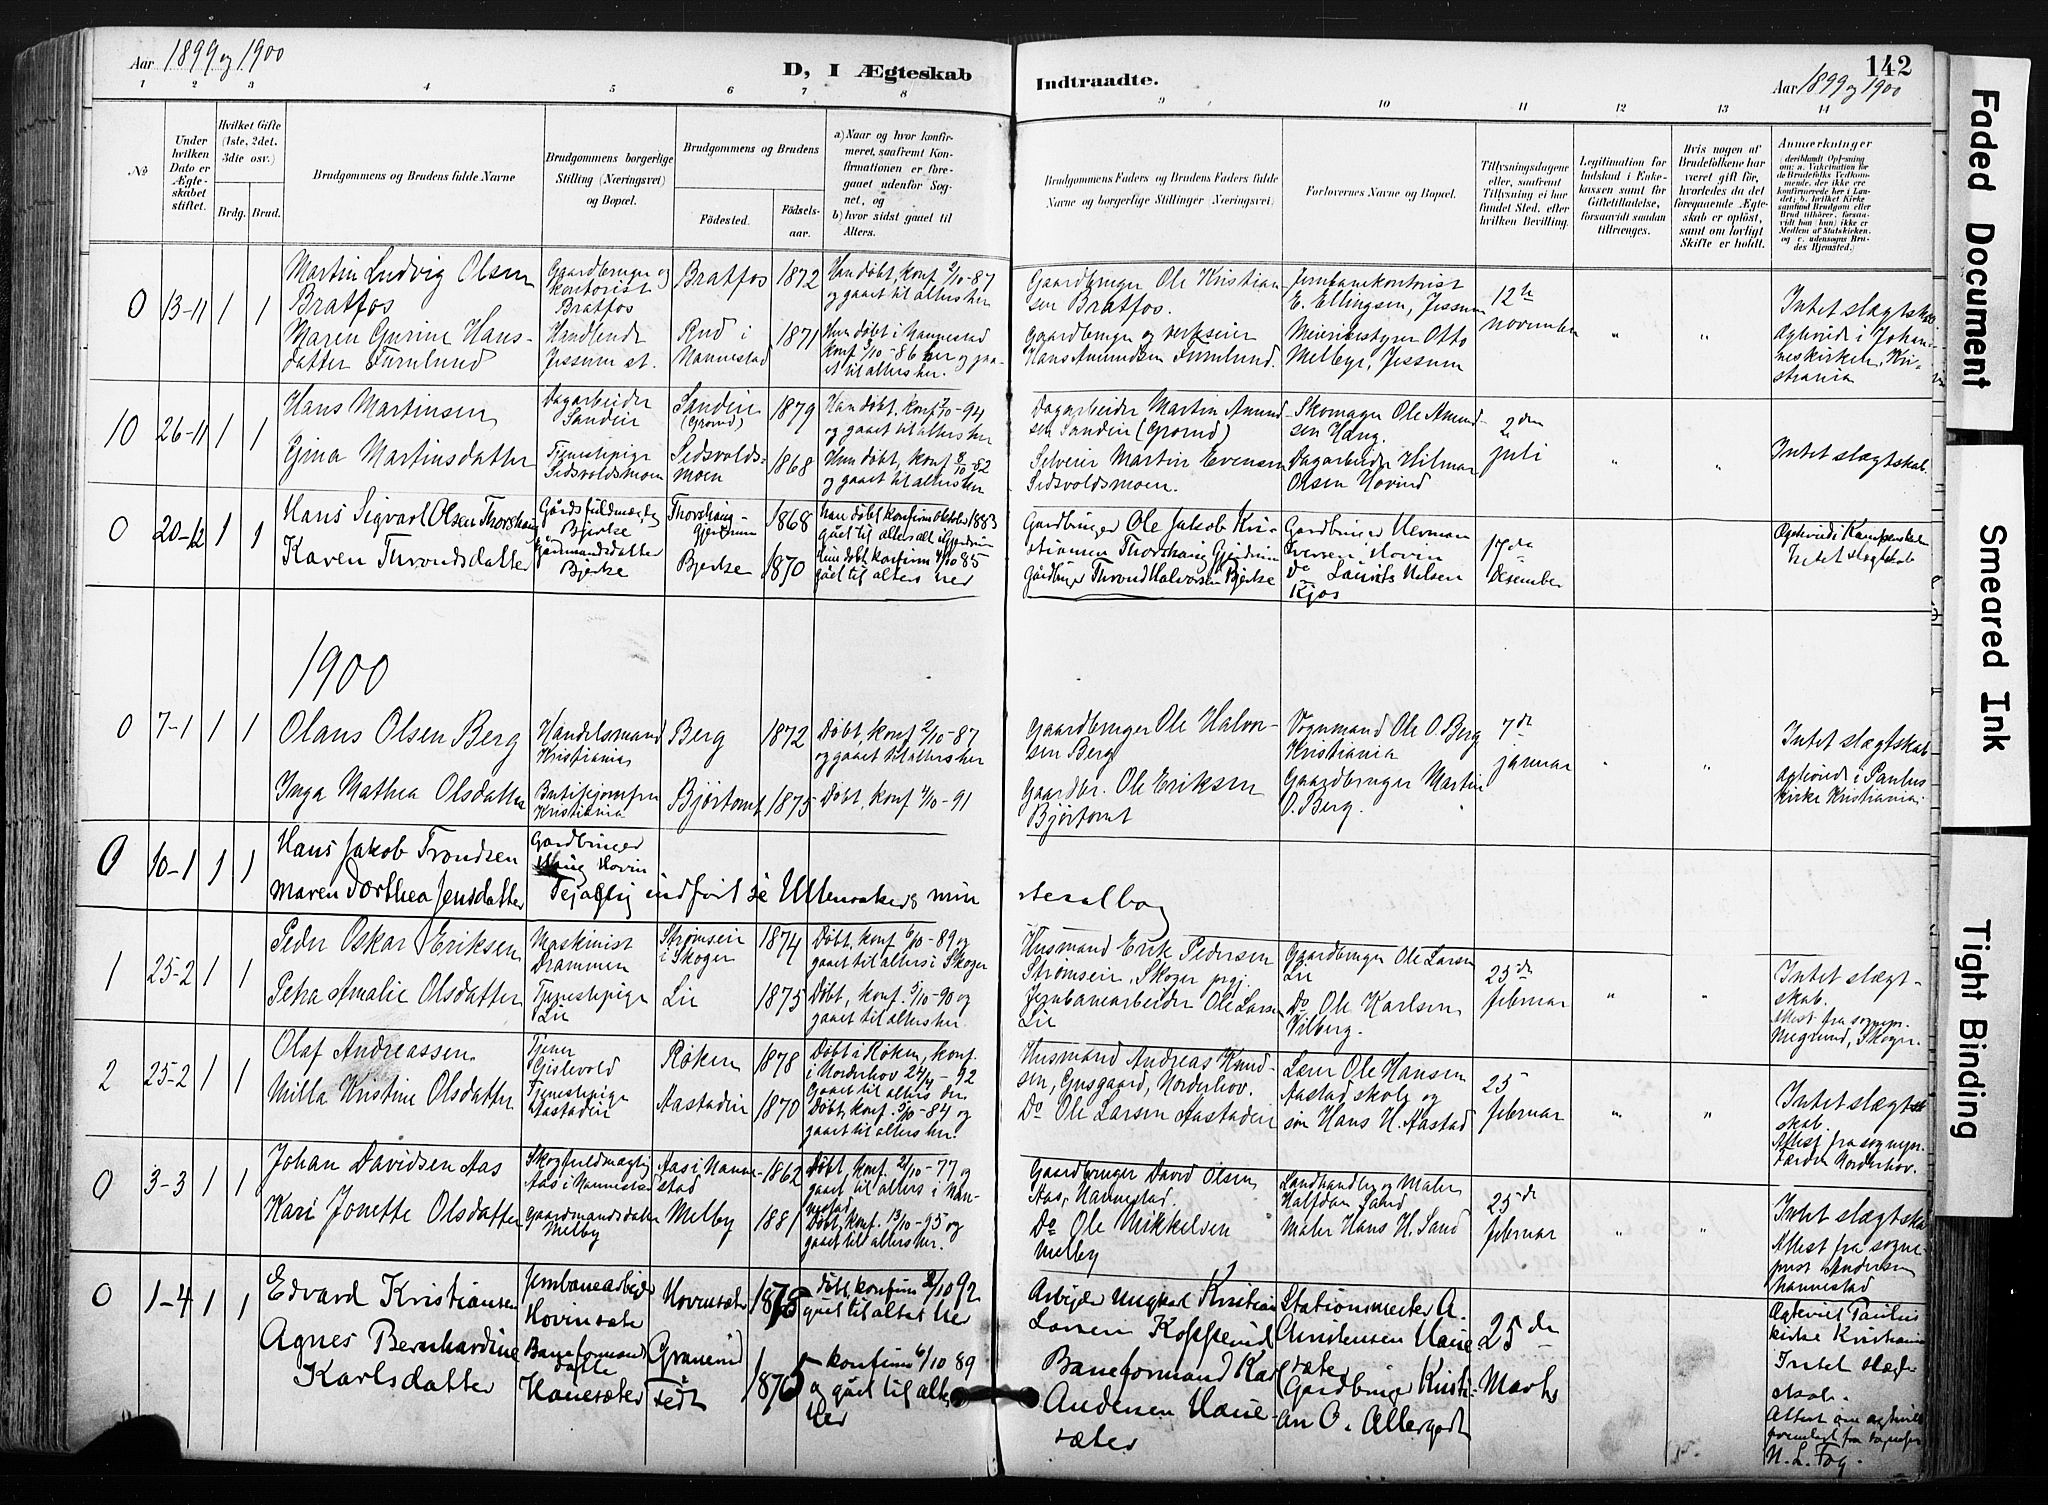 Aar 1899 og 1900
D, I Ægteskab
Indtraadte.
142
Aar 1899 og 1900
1 2 3 4 5 6 7 8 9 10 11 12 13 14
No
Under hvilken Dato er Ægteskabet stiftet.
Hvilket Gifte (1ste, 2det, 3die osv.)
Brdg. Brud.
Brudgommens og Brudens fulde Navne
Brudgommens borgerlige Stilling (Næringsvei) og Bopæl.
Brudgommens og Brudens
Fødested.
Fødselsaar.
a) Naar og hvor konfirmeret, saafremt Konfirmationen er foregaaet udenfor Sognet, og
b) hvor sidst gaaet til Alters.
Brudgommens Faders og Brudens Faders fulde Navne og borgerlige Stillinger (Næringsvei)
Forlovernes Navne og Bopæl.
Tillysningsdagene eller, saafremt Tillysning ei har fundet Sted, efter hvilken Bevilling.
Legitimation for Indskud i Enkekassen samt for Giftetilladelse, forsaavidt saadan tiltrænges.
Hvis nogen af Brudefolkene har været gift før, hvorledes da det foregaaende Ægteskab er opløst, samt om lovligt Skifte er holdt.
Anmærkninger
0 13-11 1 1
Martin Ludvig Olsen Bratfos
Gaardbruger og kontorist Bratfos
Bratfos 1872
Han døbt, konf 2/10-87 og gaaet til alters her
Gaardbruger Ole Kristiansen Bratfos.
Jernbanekontorist E. Ellingsen, Jessum
12te november
Intet slægtskab.
Maren Gurine Hansdatter Furulund
Handlende Jessum st.
Rud i Nannestad 1871
Hun døbt i Nannestad konf 3/10-86 her og gaaet til alters her.
Gaardbruger og verkseier Hans Amundsen Furulund.
Meieribestyrer Otto Melbye, Jessum
Ægtviede i Johanneskirken, Kristiania
10 26-11 1 1
Hans Martinsen
Dagarbeider Sandeie
Sandeie 1879
Han døbt, konf 7/10-94 og gaaet til alters her
Dagarbeider Martin Amundsen Sandeie
Skomager Ole Amundsen Haug.
2den juli
Intet slægtskab.
Gina Martinsdatter
Tjenestepige Eidsvoldsmoen
Eidsvoldsmoen 1868
Hun døbt, konf 8/10-82 og gaaet til alters her
Selveier Martin Evensen Eidsvoldsmoen.
Dagarbeider Hilmar Olsen Hovind
0 20-12 1 1
Hans Sigvart Olsen Thorshaug
Gårdsfuldmægtig Bjerke
Thorshaug Gjerdrum 1868
Gardbruger Ole Jakob Kristiansen Thorshaug Gjerdrum
Gardbruger Herman Iversen Hoven
17de Desember
Intet slægtskab
Karen Throndsdatter
Gårdmandsdatter Bjerke
Bjerke 1870
Hun døbt konfirm 4/10 85 gået til alters her
Gårdbruger Thrond Halvorsen Bjerke
do Laurits Nilsen Kjos
1900
0 7-1 1 1
Olaus Olsen Berg
Handelsmand Kristiania
Berg 1872
Døbt, konf 2/10-87 og gaaet til alters her
Gaardbruger Ole Halvorsen Berg
Vognmand Ole O. Berg Kristiania
7de januar
Intet slægtskab
Inga Mathea Olsdatter
Butikjomfru Kristiania
Bjørtomt 1875
Døbt, konf 4/10-91
Gaardbr. Ole Eriksen Bjørtomt
Gaardbruger Martin O. Berg.
Ægtviede i Paulus kirke Kristiania
0 10-1 1 1
Hans Jakob Trondsen
Gardbruger Haug Hovin
Maren Dorthea Jensdatter
Fejaglig indført se Ullensakers ministerialbog
1 25-2 1 1
Peder Oskar Eriksen
Maskinist Drammen
Strømseie i Skoger 1874
Døbt, konf 6/10-89 og gaaet til alters i Skoger
Husmand Erik Pedersen Strømseie, Skoger prgj.
Gaardbruger Ole Larsen Lie
25de februar
Intet slægtskab.
Petra Amalie Olsdatter
Tjenestepige Lie
Lie 1875
Døbt, konf. 5/10-90 og gaaet til alters her.
Jernbanearbeider Ole Larsen Lie
Do Ole Karlsen Vilberg.
2 25-2 1 1
Olaf Andreassen
Tjener Gislevold
Røken 1878
Døbt i Røken, konf. i Norderhov 24/4-92 Gaaet til alters der
Husmand Andreas Knudsen, Gusgaard, Norderhov.
Lærer Ole Hansen Aastad skole og
25 februar
Intet slægtskab.
Milla Kristine Olsdatter
Tjenestepige Aastadeie
Aastadeie 1870
Døbt, konf. 5/10-84 og gaaet til alters her.
Do Ole Larsen Aastadeie
søn Hans H. Aastad
Attest fra sognepresten Norderhov.
0 3-3 1 1
Johan Davidsen Aas
Skogfuldmægtig Aas i Nannestad
Aas i Nannestad 1862
Døbt, konf. 21/10-77 og gaaet til alters i Nannestad
Gaardbruger David Olsen Aas, Nannestad.
Landhandler og Maler Halfdan Sand
25de februar
Intet slægtskab
Kari Jonette Olsdatter
Gaardmandsdatter Melby
Melby 1881
Døbt, konf. 13/10-95 og gaaet til alters her.
Do Ole Mikkelsen Melby
Maler Hans H. Sand
Attest fra sogneprest Andersen Nannestad
0 1-4 1 1
Edvard Kristiansen
Jernbanearbejder Hovinsæte
Hovinsæte 1878
Døbt, konfirm 2/10 92 gået til alters her
Arbejder Ungkarl Kristian Larsen Kopperud
Stationsmester A. Christensen Hauesæter
25de Marts
Agnes Bernhardine Karlsdatter
Baneformandsdatter Hauesæter
1875
konfirm 6/10 89 og gået til alters her
Baneformand Karl Andersen Hauesæter
Gardbruger Kristian O. Allergodt
Ægteviet Paulus kirke Kristiania
Intet slægtskab.
N. L. Fog.
Faded Document
Smeared Ink
Tight Binding